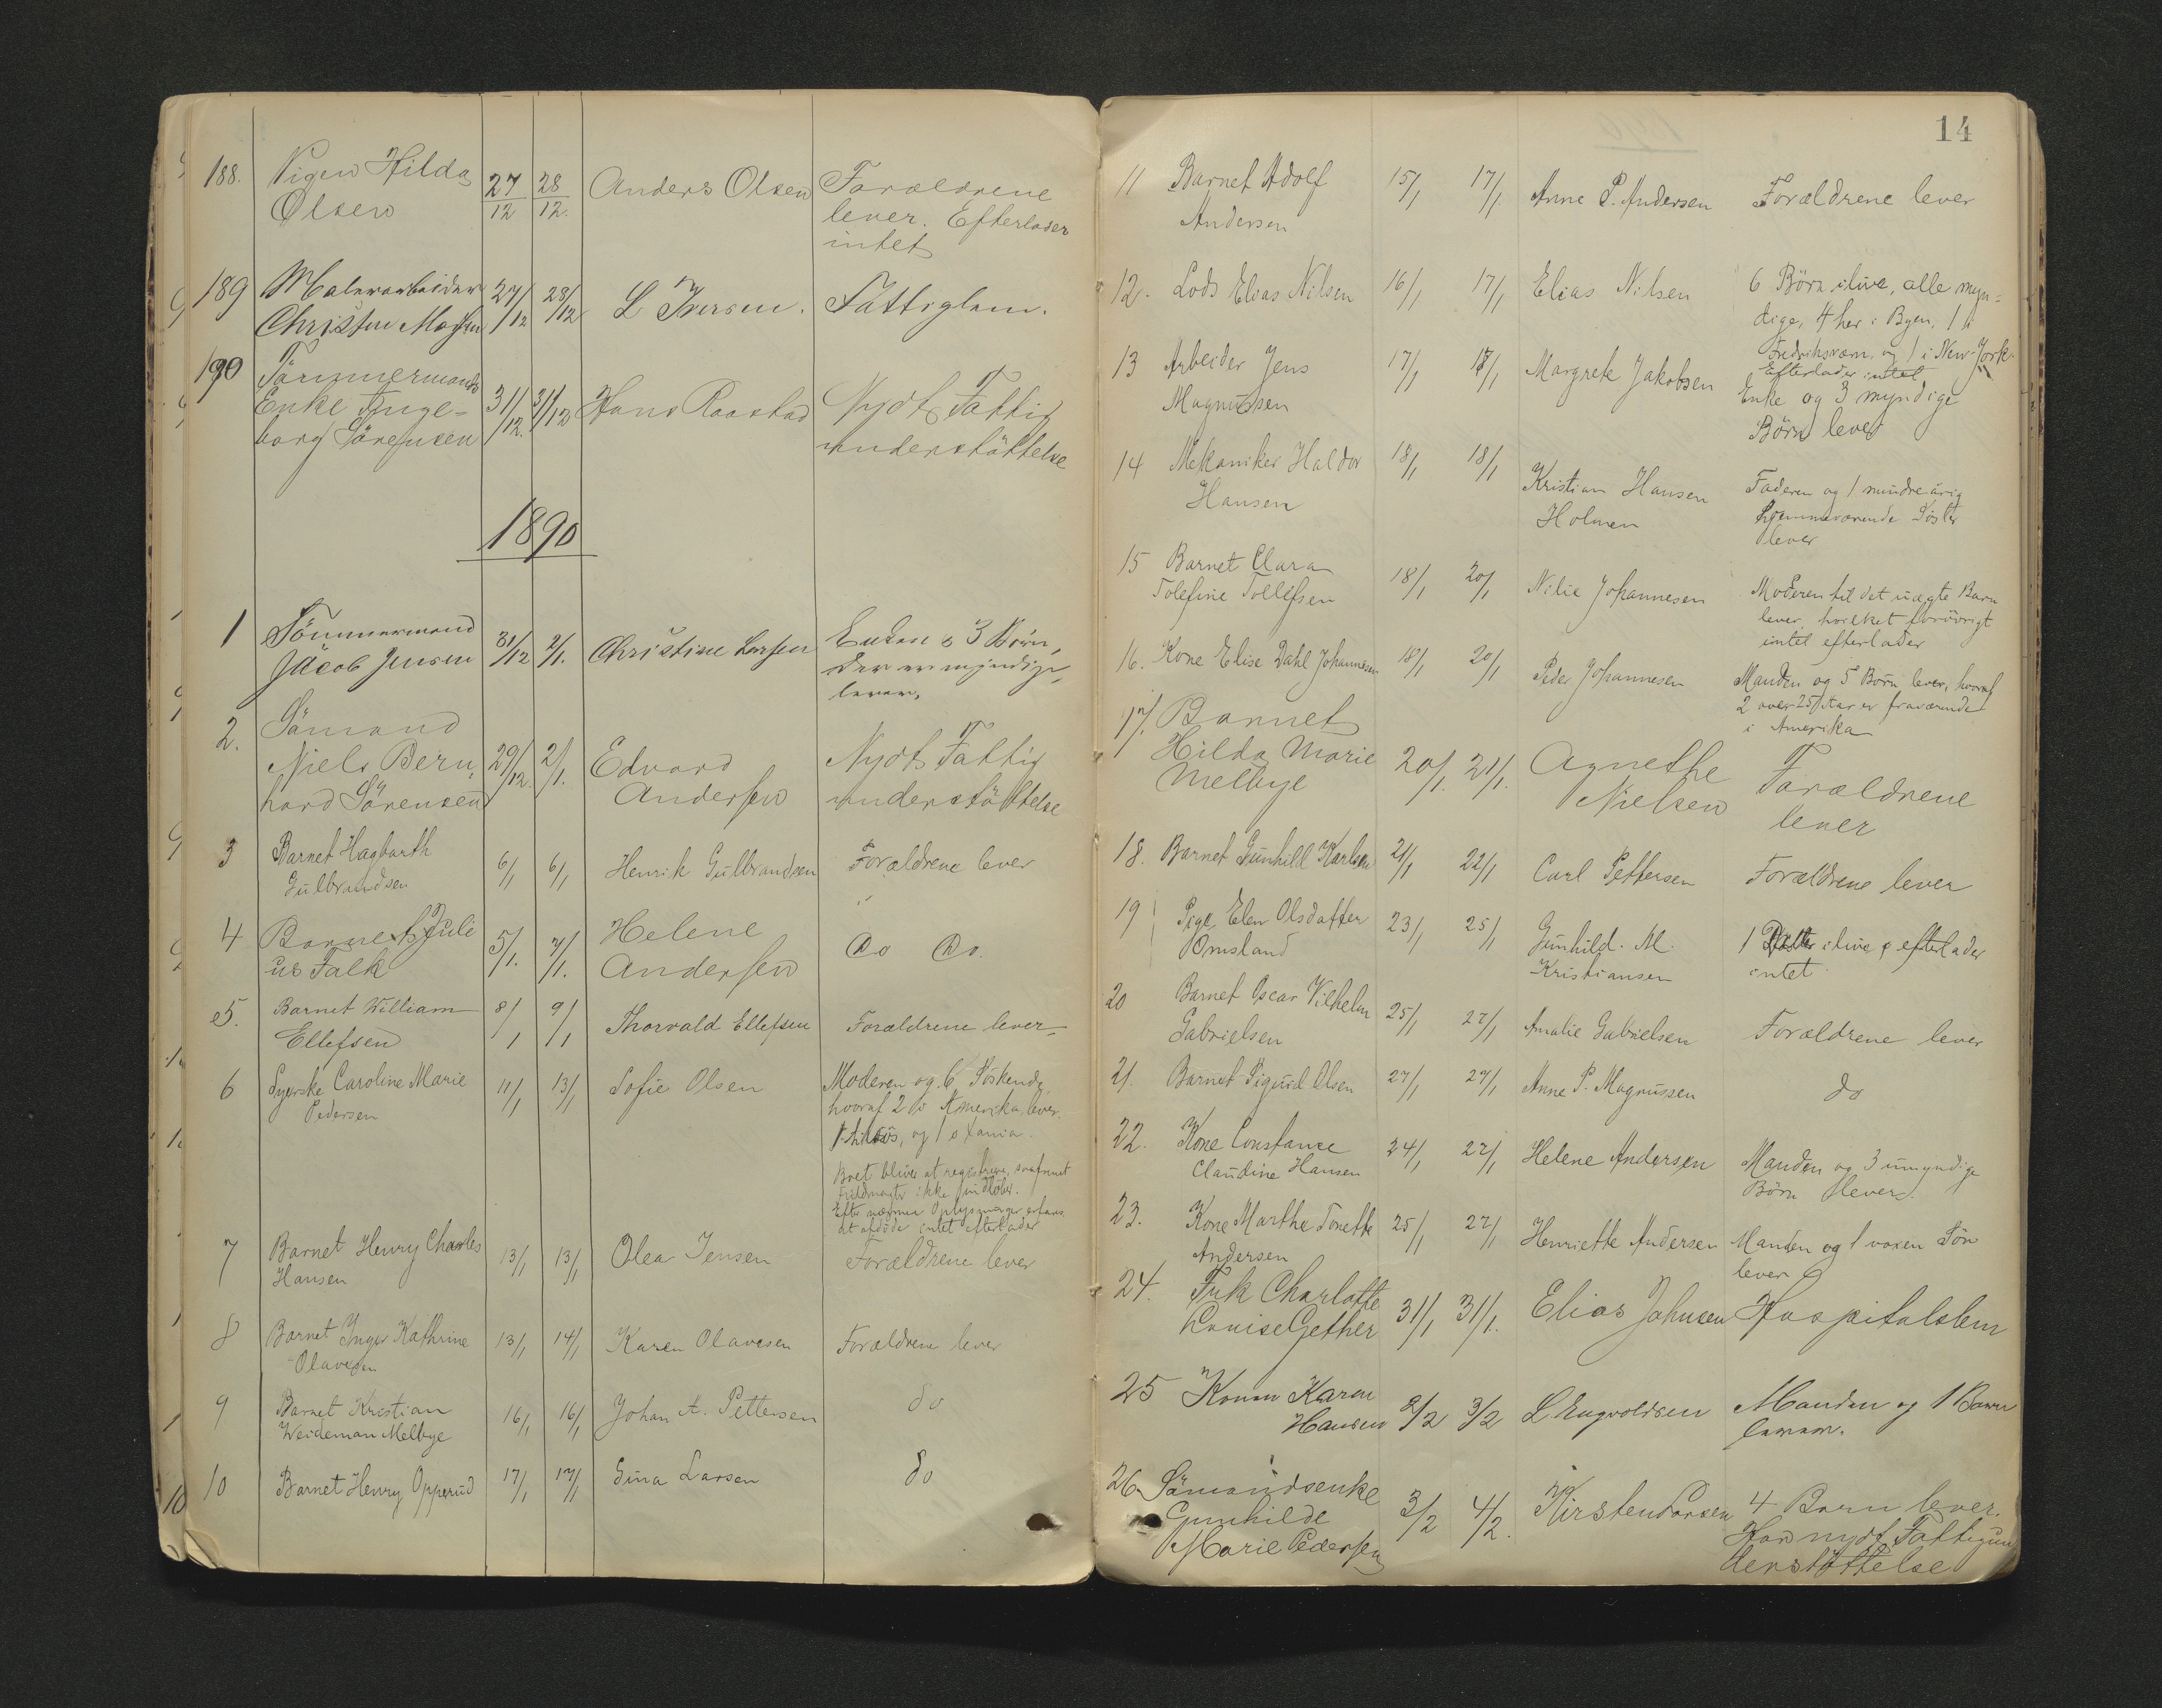 188. Pigen Hilda 27/12 28/12. Anders Olsen Forældrene
Olsen lever. Efterlader
intet
189 Malerarbeider 27/12 28/12 L Iversen. Fattiglem.
Christen
190 Tømmermands
Enke Inge= 31/12. 31/12 Hans Raastad Nydt Fattig
borg Sörensen understöttelse
1890
1 Tömmermand
Jacob Jensen 31/12 2/1. Christine Larsen Enken & 3 Börn,
der er myndige,
lever.
2. Sömand
Niels Bern= 29/12. 2/1. Edvard Nydt Fattig
hard Sörensen Andersen understöttelse
3 Barnet Hagbarth 6/1 6/1 Henrik Gulbrandsen Forældrene lever
Gulbrandsen
4 Barnet Juli 5/1. 7/1. Helene Do Do.
us Falk Andersen
5. Barnet William 8/1 9/1 Thorvald Ellefsen Forældrene lever
Ellefsen
6 Syerske Caroline Marie 11/1 13/1 Sofie Olsen Moderen og 6 Söskende
Pedersen hvoraf 2 i Amerika, lever.
og 1 i Xania.
Boet bliver at registrere, saafremt
Fuldmagter ikke indløber.
Efter nærmere Oplysninger erfares
at afdöde intet efterlader
7 Barnet Henry Charles 13/1 13/1 Olea Jensen Forældrene lever
Hansen
8 Barnet Inger Kathrine 13/1 14/1 Karen Olavesen Forældrene lever
Olavesen
9 Barnet Kristian 16/1 16/1 Johan A. Pettersen do
Weideman Melbye
10 Barnet Henry Opperud 17/1 17/1 Gina Larsen do
14
11 Barnet Adolf 15/1 17/1. Anne P. Andersen Forældrene lever
Andersen
12. Lods Elias Nilsen 16/1 17/1 Elias Nilsen 6 Börn ilive, alle myn=
dige, 4 her i Byen, 1 i
Fredriksværn, og 1 i New-York.
Efterlader intet
13 Arbeider Jens 17/1 18/1 Margrete Jakobsen Enke og 3 myndige
Magnussen Börn lever
14 Mekaniker Haldor 18/1 18/1 Kristian Hansen Faderen og 1 mindreårig
Hansen Holmen hjemmeværende Söster
lever
15 Barnet Clara 18/1 20/1 Nilie Johannesen Moderen til det uægte Barn
Tolefine Tollefsen lever, hvilket forövrigt
intet efterlader
16. Kone Elise Dahl Johannesen 18/1 20/1 Peder Johannesen Manden og 5 Börn lever, hvoraf
2 over 25 Aar er fraværende
i Amerika
17. Barnet
Hilda Marie 20/1. 21/1. Agnethe Forældrene
Melbye Nielsen lever
18. Barnet Gunhill Karlsen 21/1 22/1 Carl Pettersen Forældrene lever
19 Pige Elen Olsdatter 23/1 25/1 Gunhild. M. 1 ilive & efterlader
Omsland Kristiansen intet
20 Barnet Oscar Vilhelm 25/1 27/1 Amalie Gabrielsen Forældrene lever
Gabrielsen
21. Barnet Sigurd Olsen 27/1 27/1 Anne P. Magnussen do
22. Kone Constance 24/1 27/1 Helene Andersen Manden og 3 umyndige
Claudine Hansen Börn lever.
23. Kone Marthe Tonette 25/1 27/1 Henriette Andersen Manden og 1 voxen Sön
Andersen lever
24. Frk Charlotte 31/1 31/1. Elias Johnsen Hospitalslem
Louise Gether
25 Konen Karen 2/2 3/2 L Engvoldsen Manden og 1 Barn
Hansen lever.
26. Sömandsenke
Gunhilde 3/2 4/2. Kirsten Larsen 4 Barn lever.
Marie Pedersen Har nydt Fattigun
derstöttelse